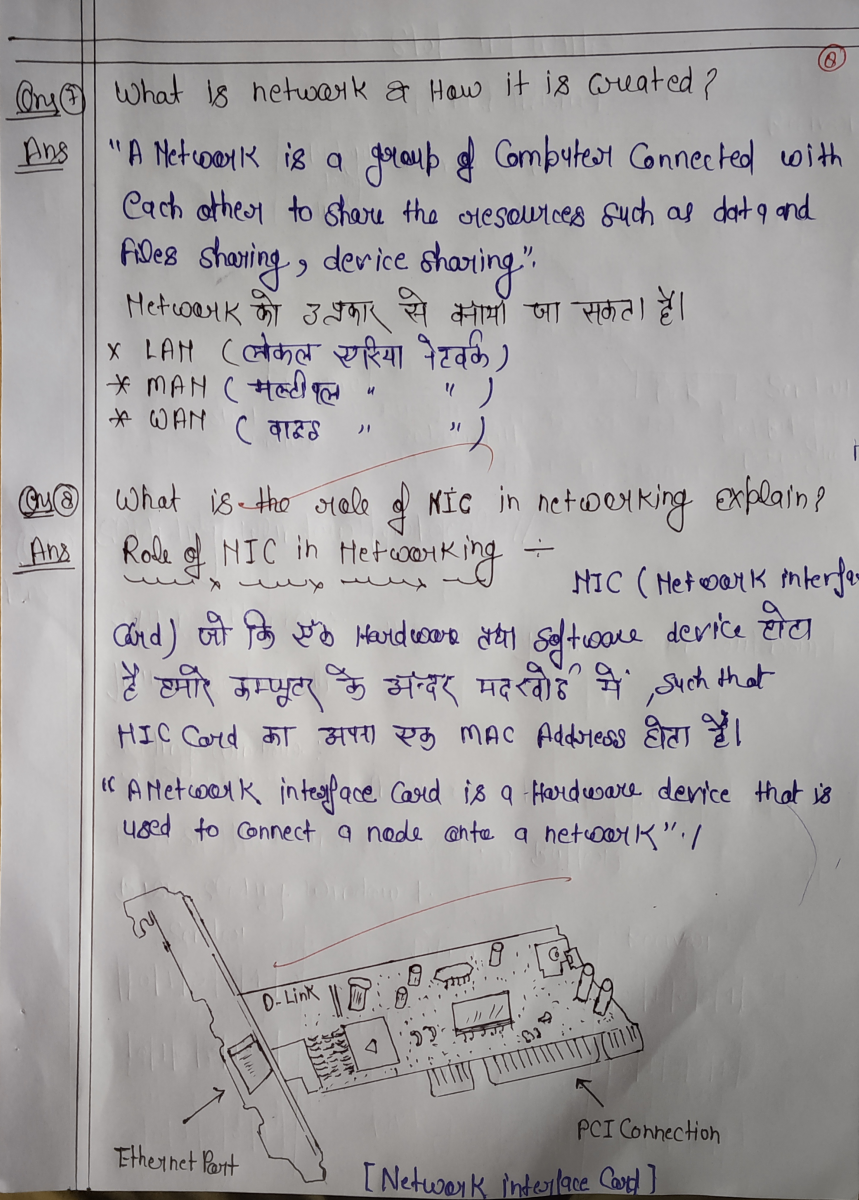 8
Ques 7 What is network & How it is Created?
Ans "A Network is a group of Computer Connected with
Each other to share the resources such as data and
files sharing, device sharing".
Network को उ प्रकार से बनाया जा सकता है।
x LAN (लोकल एरिया नेटवर्क)
* MAN (मल्टीपल " ")
* WAN (वाइड " ")
Ques 8 What is the role of NIC in networking explain?
Ans Role of NIC in Networking ÷
NIC (Network interface
Card) जो कि एक Hardware तथा Software device होता
है हमारे कम्प्यूटर के अन्दर मदरबोर्ड में, such that
NIC Card का अपना एक MAC Address होता है।
"A Network interface Card is a Hardware device that is
used to connect a node onto a network".
D-Link
Ethernet Port
PCI Connection
[Network interface Card]